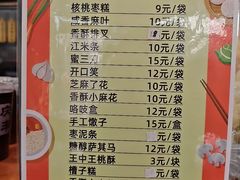 核桃枣糕 9元/袋
咸香麻叶 10元/袋
香酥排叉 元/袋
江米条 10元/袋
蜜三刀 15元/袋
开口笑 12元/袋
芝麻了花 10元/袋
香酥小麻花 10元/袋
咯吱盒 12元/袋
手工馓子 15元/盒
枣泥条 元/袋
糖醇萨其马 12元/袋
王中王桃酥 3元/块
槽子糕 元/袋